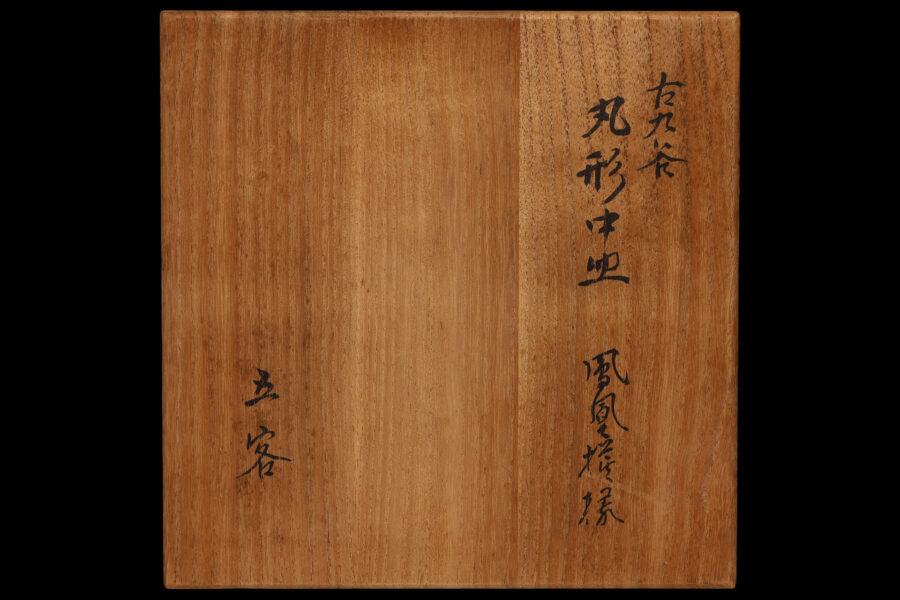 古九谷
丸形中皿 鳳凰模様
五客